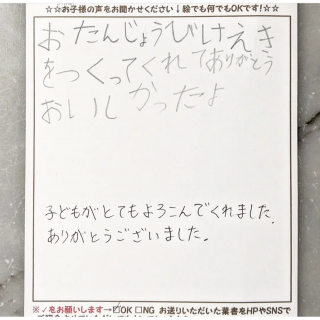 ☆☆お子様の声をお聞かせください↓絵でも何でもOKです!☆☆
おたんじょうびけえき
をつくってくれてありがとう
おいしかったよ
子どもがとてもよろこんでくれました.
ありがとうございました。
※✓をお願いします→☑OK ☐NG お送りいただいた葉書をHPやSNSで